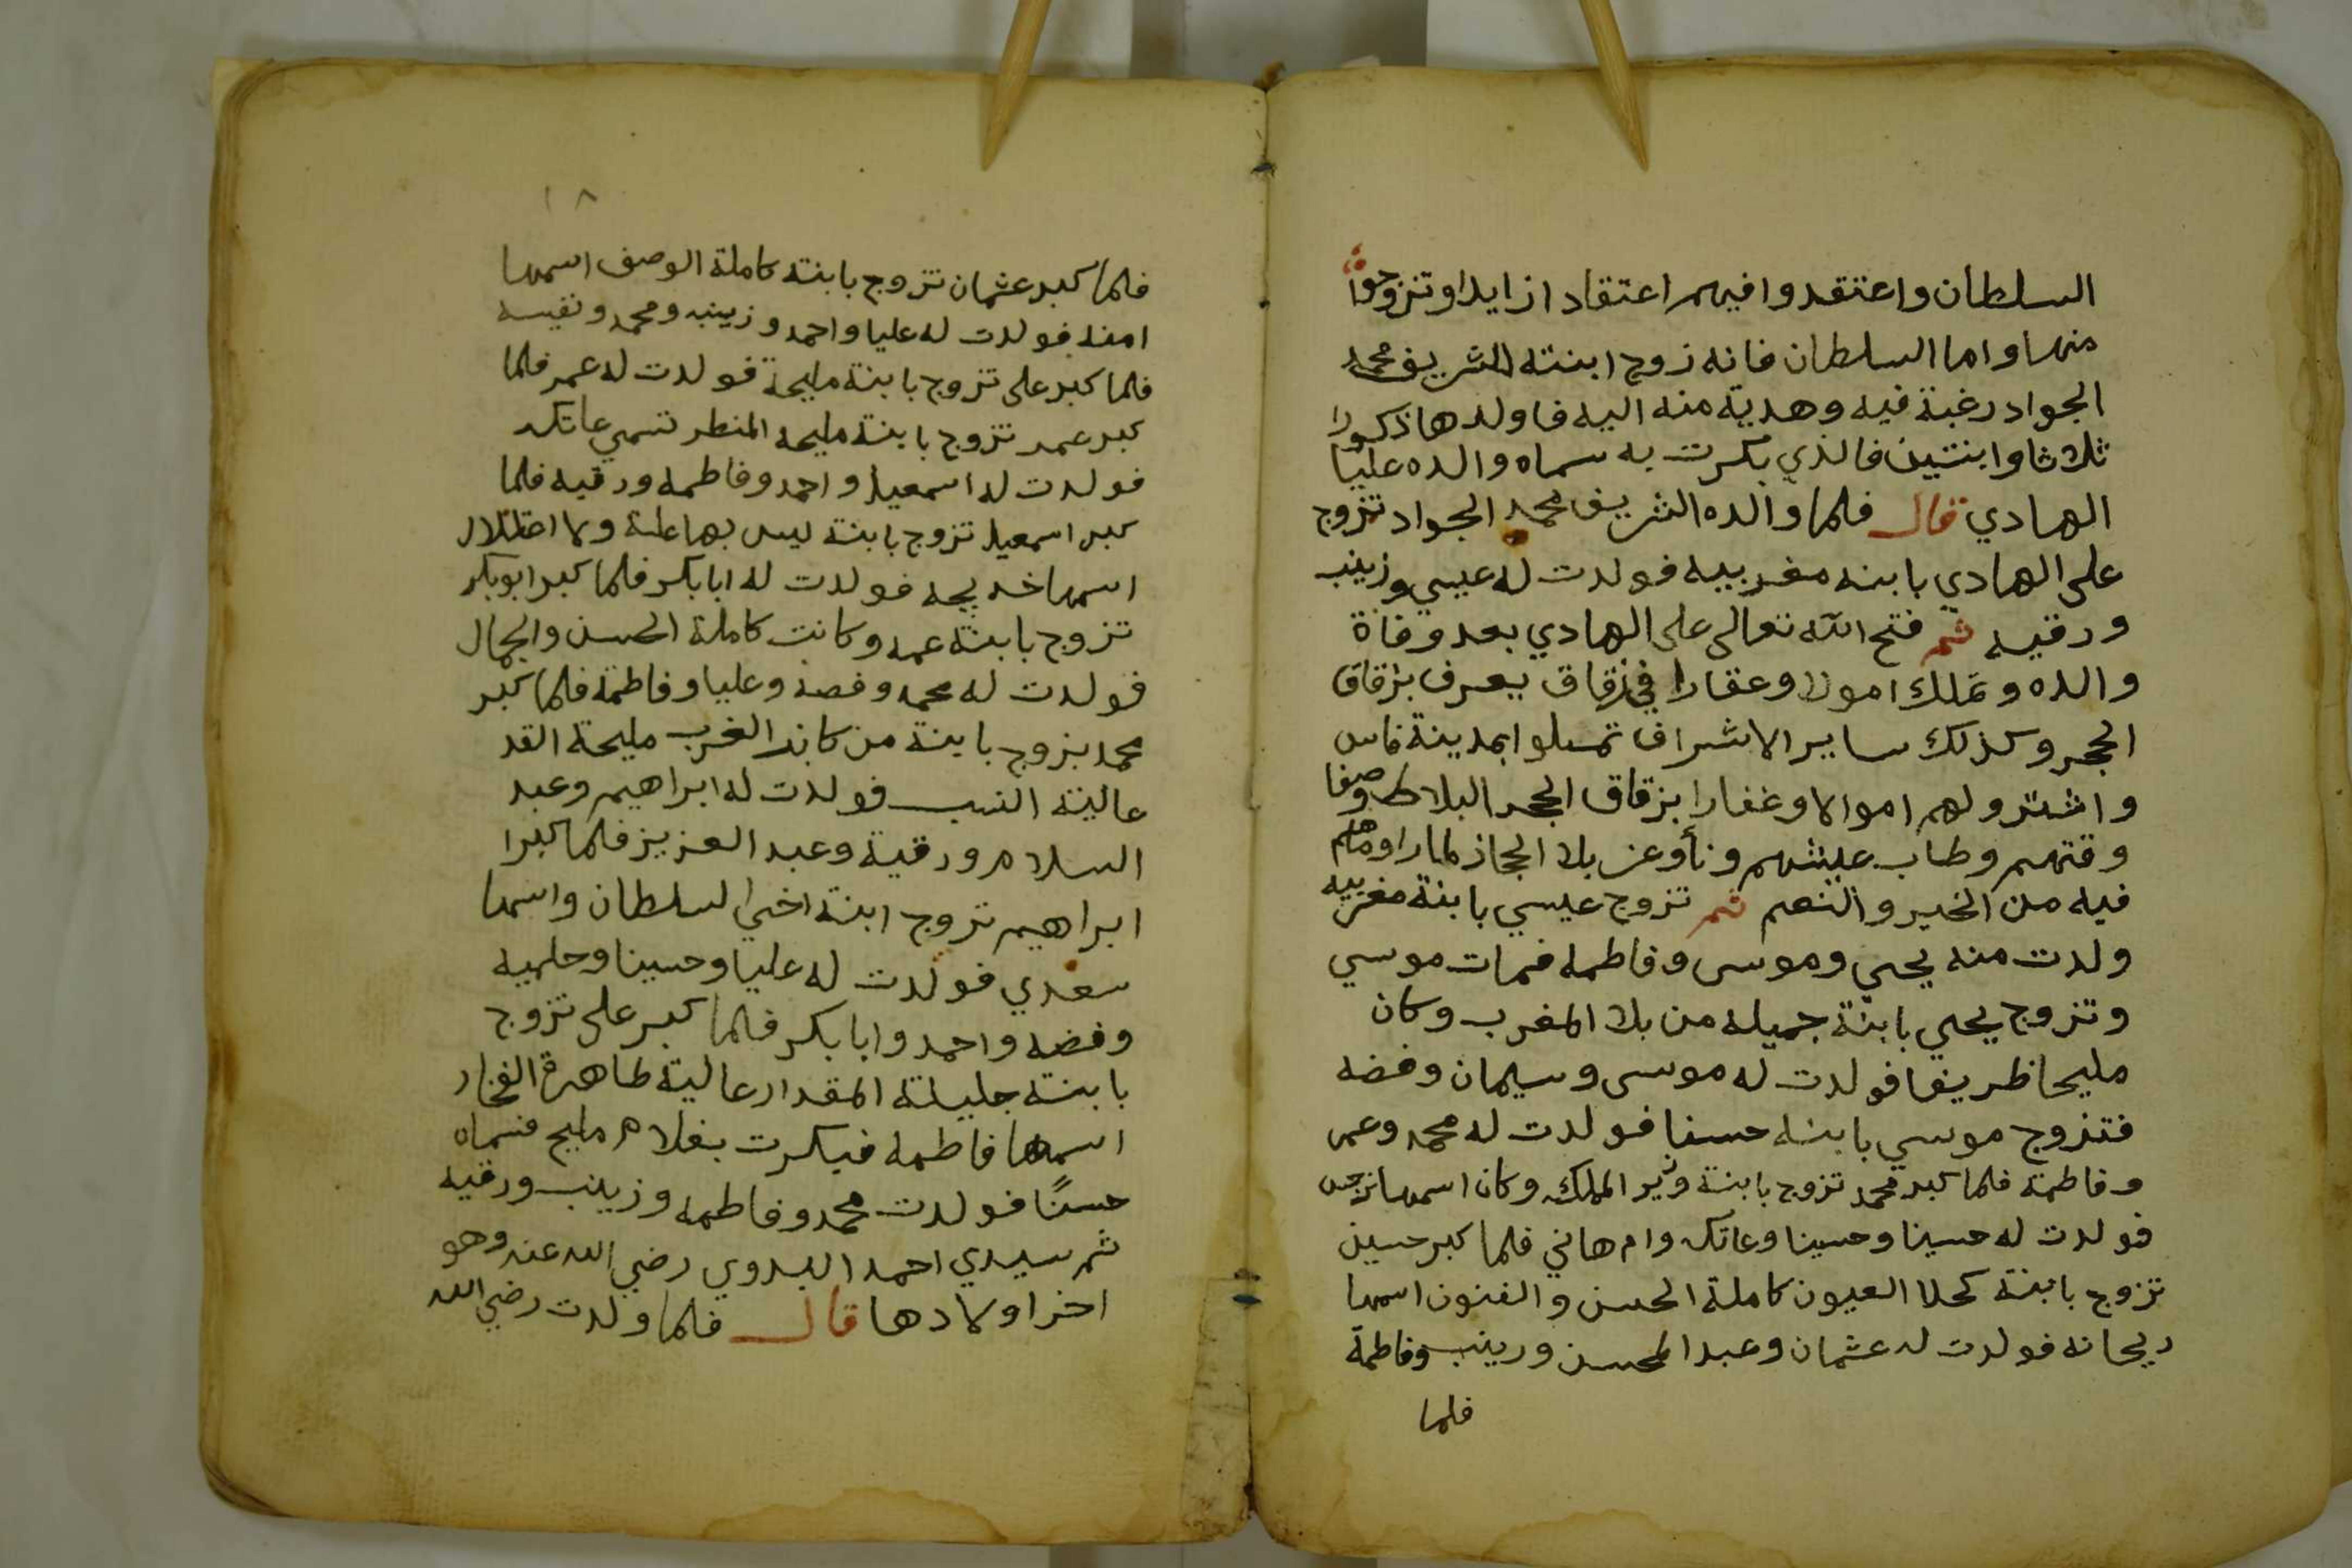 السلطان واعتقدوا فيهم اعتقادا زايدا وتزوجوا
منها واما السلطان فانه زوج ابنته للشريف محمد
الجواد رغبة فيه وهدية منه اليه فاولدها ذكورا
ثلاثا وابنتين فالذي بكرت به سماه والده عليا
الهادي قال فلما والده الشريف محمد الجواد تزوج
على الهادي بابنه مغربيه فولدت له عيسي وزينب
ورقيه ثم فتح الله تعالى على الهادي بعد وفاة
والده وتملك امولا وعقارا في زقاق يعرف بزقاق
الحجر وكذلك ساير الاشراف تمسلوا بمدينة فاس
واشترولهم اموالا وغفارا بزقاق الحجر البلاط وصفا
وقتهم وطاب عيشهم ونأوعن بلاد الحجاز لما راوما هم
فيه من الخير والنعم ثم تزوج عيسي بابنة مغربيه
ولدت منه يحيي وموسى وفاطمه فمات موسي
وتزوج يحيي بابنة جميله من بلاد المغرب وكان
مليحا ظريفا فولدت له موسى وسيمان وفضه
فتزوج موسي بابنه حسنا فولدت له محمد وعمر
وفاطمة فلما كبر محمد تزوج بابنة وزير الملك وكان اسمها نرجس
فولدت له حسينا وحسينا وعاتكه وام هاني فلما كبر حسين
تزوج بابنة كحلا العيون كاملة الحسن والفنون اسمها
ريحانه فولدت له عثمان وعبد المحسن وزينب وفاطمة
فلما
١٨
فلما كبر عثمان تزوج بابنته كاملة الوصف اسمها
امنه فولدت له عليا واحمد وزينب ومحمد ونفيسه
فلما كبر على تزوج بابنة مليحة فولدت له عمر فلما
كبر عمر تزوج بابنة مليحه المنظر تسمي عاتكه
فولدت له اسمعيل واحمد وفاطمه ورقيه فلما
كبر اسمعيل تزوج بابنة ليس بها علة ولا اختلال
اسمها خديجه فولدت له ابابكر فلما كبر ابوبكر
تزوج بابنة عمه وكانت كاملة الحسن والجمال
فولدت له محمد وفضه وعليا وفاطمة فلما كبر
محمد تزوج بابنة من كابر الغرب مليحة القد
عالية النسب فولدت له ابراهيم وعبد
السلام ورقية وعبد العزيز فلما كبرا
ابراهيم تزوج ابنة اخي السلطان واسمها
سعدي فولدت له عليا وحسينا وحليمه
وفضه واحمد وابابكر فلما كبر على تزوج
بابنة جليلة المقدار عالية طاهرة الفخار
اسمها فاطمه فبكرت بغلام مليح فسماه
حسنًا فولدت محمد وفاطمه وزينب ورقيه
ثم سيدي احمد البدوي رضي الله عنه وهو
اخر اولادها قال فلما ولدت رضي الله